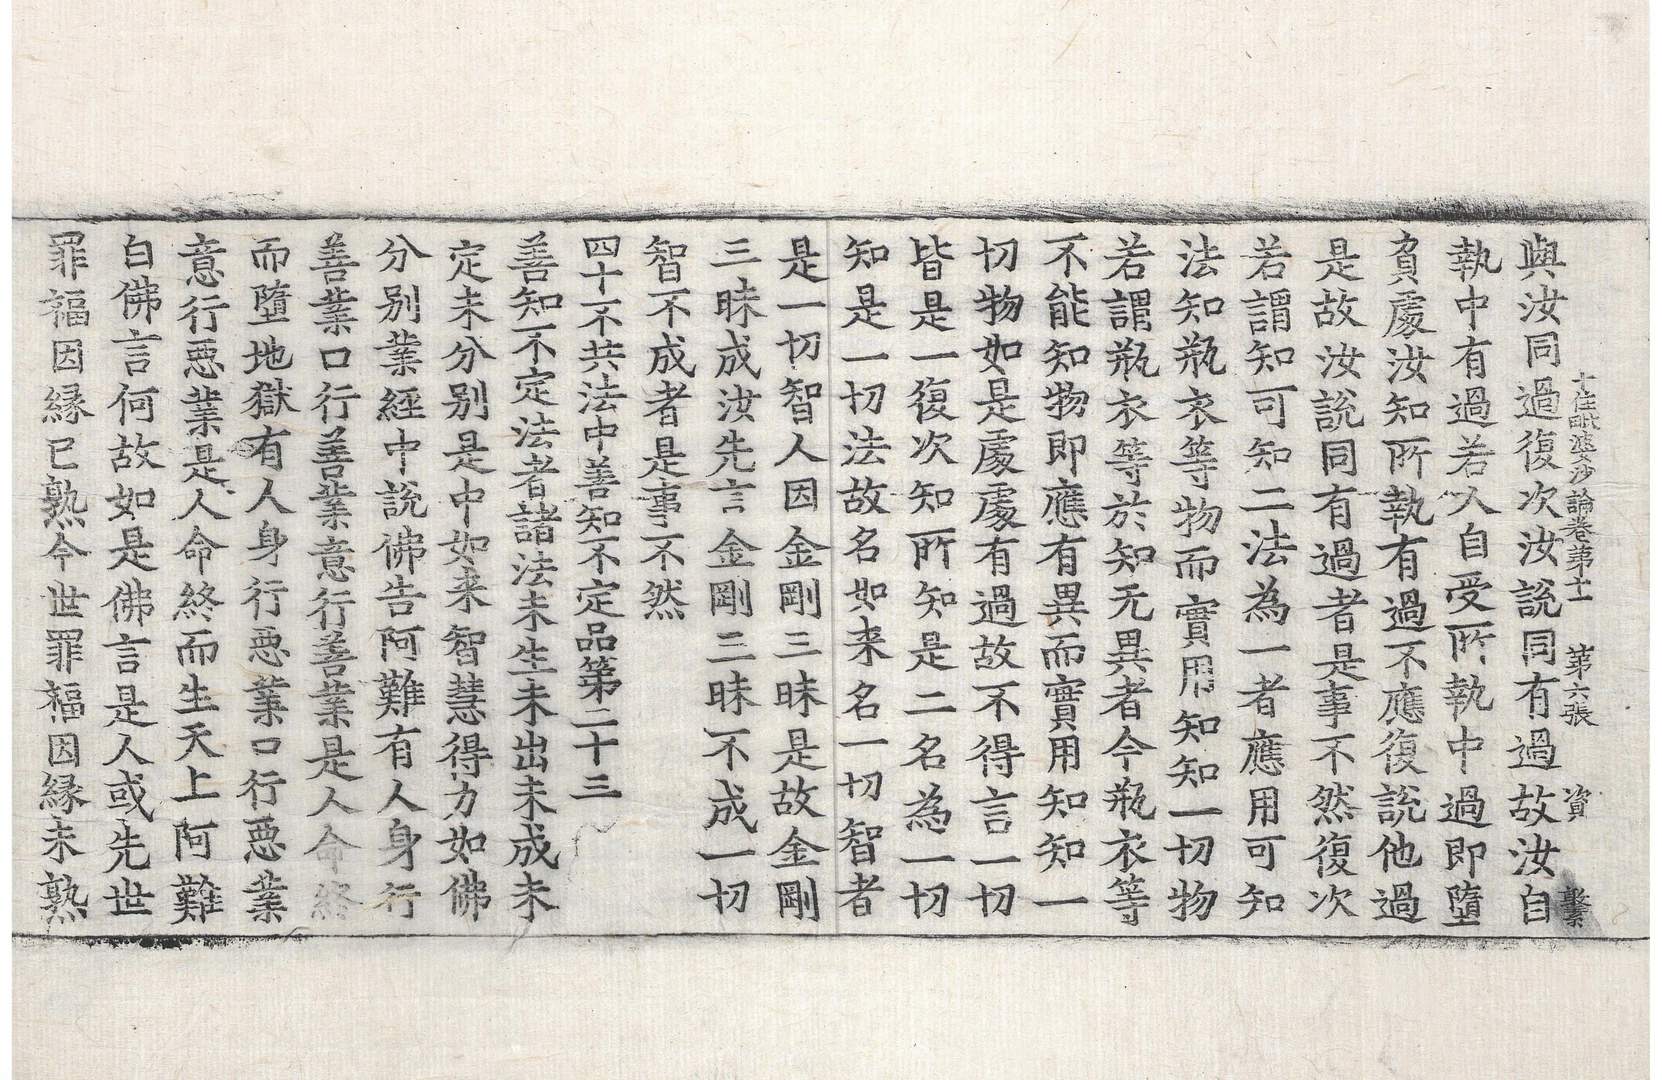 十住毗婆沙論卷第十一　第六張　資
與汝同過復次汝說同有過故汝自
執中有過若人自受所執中過即墮
負處汝知所執有過不應復說他過
是故汝說同有過者是事不然復次
若謂知可知二法為一者應用可知
法知瓶衣等物而實用知知一切物
若謂瓶衣等於知无異者今瓶衣等
不能知物即應有異而實用知知一
切物如是處處有過故不得言一切
皆是一復次知所知是二名為一切
知是一切法故名如来名一切智者
是一切智人因金剛三昧是故金剛
三昧成汝先言金剛三昧不成一切
智不成者是事不然
四十不共法中善知不定品第二十三
善知不定法者諸法未生未出未成未
定未分別是中如来智慧得力如佛
分別業經中說佛告阿難有人身行
善業口行善業意行善業是人命終
而墮地獄有人身行惡業口行惡業
意行惡業是人命終而生天上阿難
白佛言何故如是佛言是人或先世
罪福因緣已熟今世罪福因緣未熟